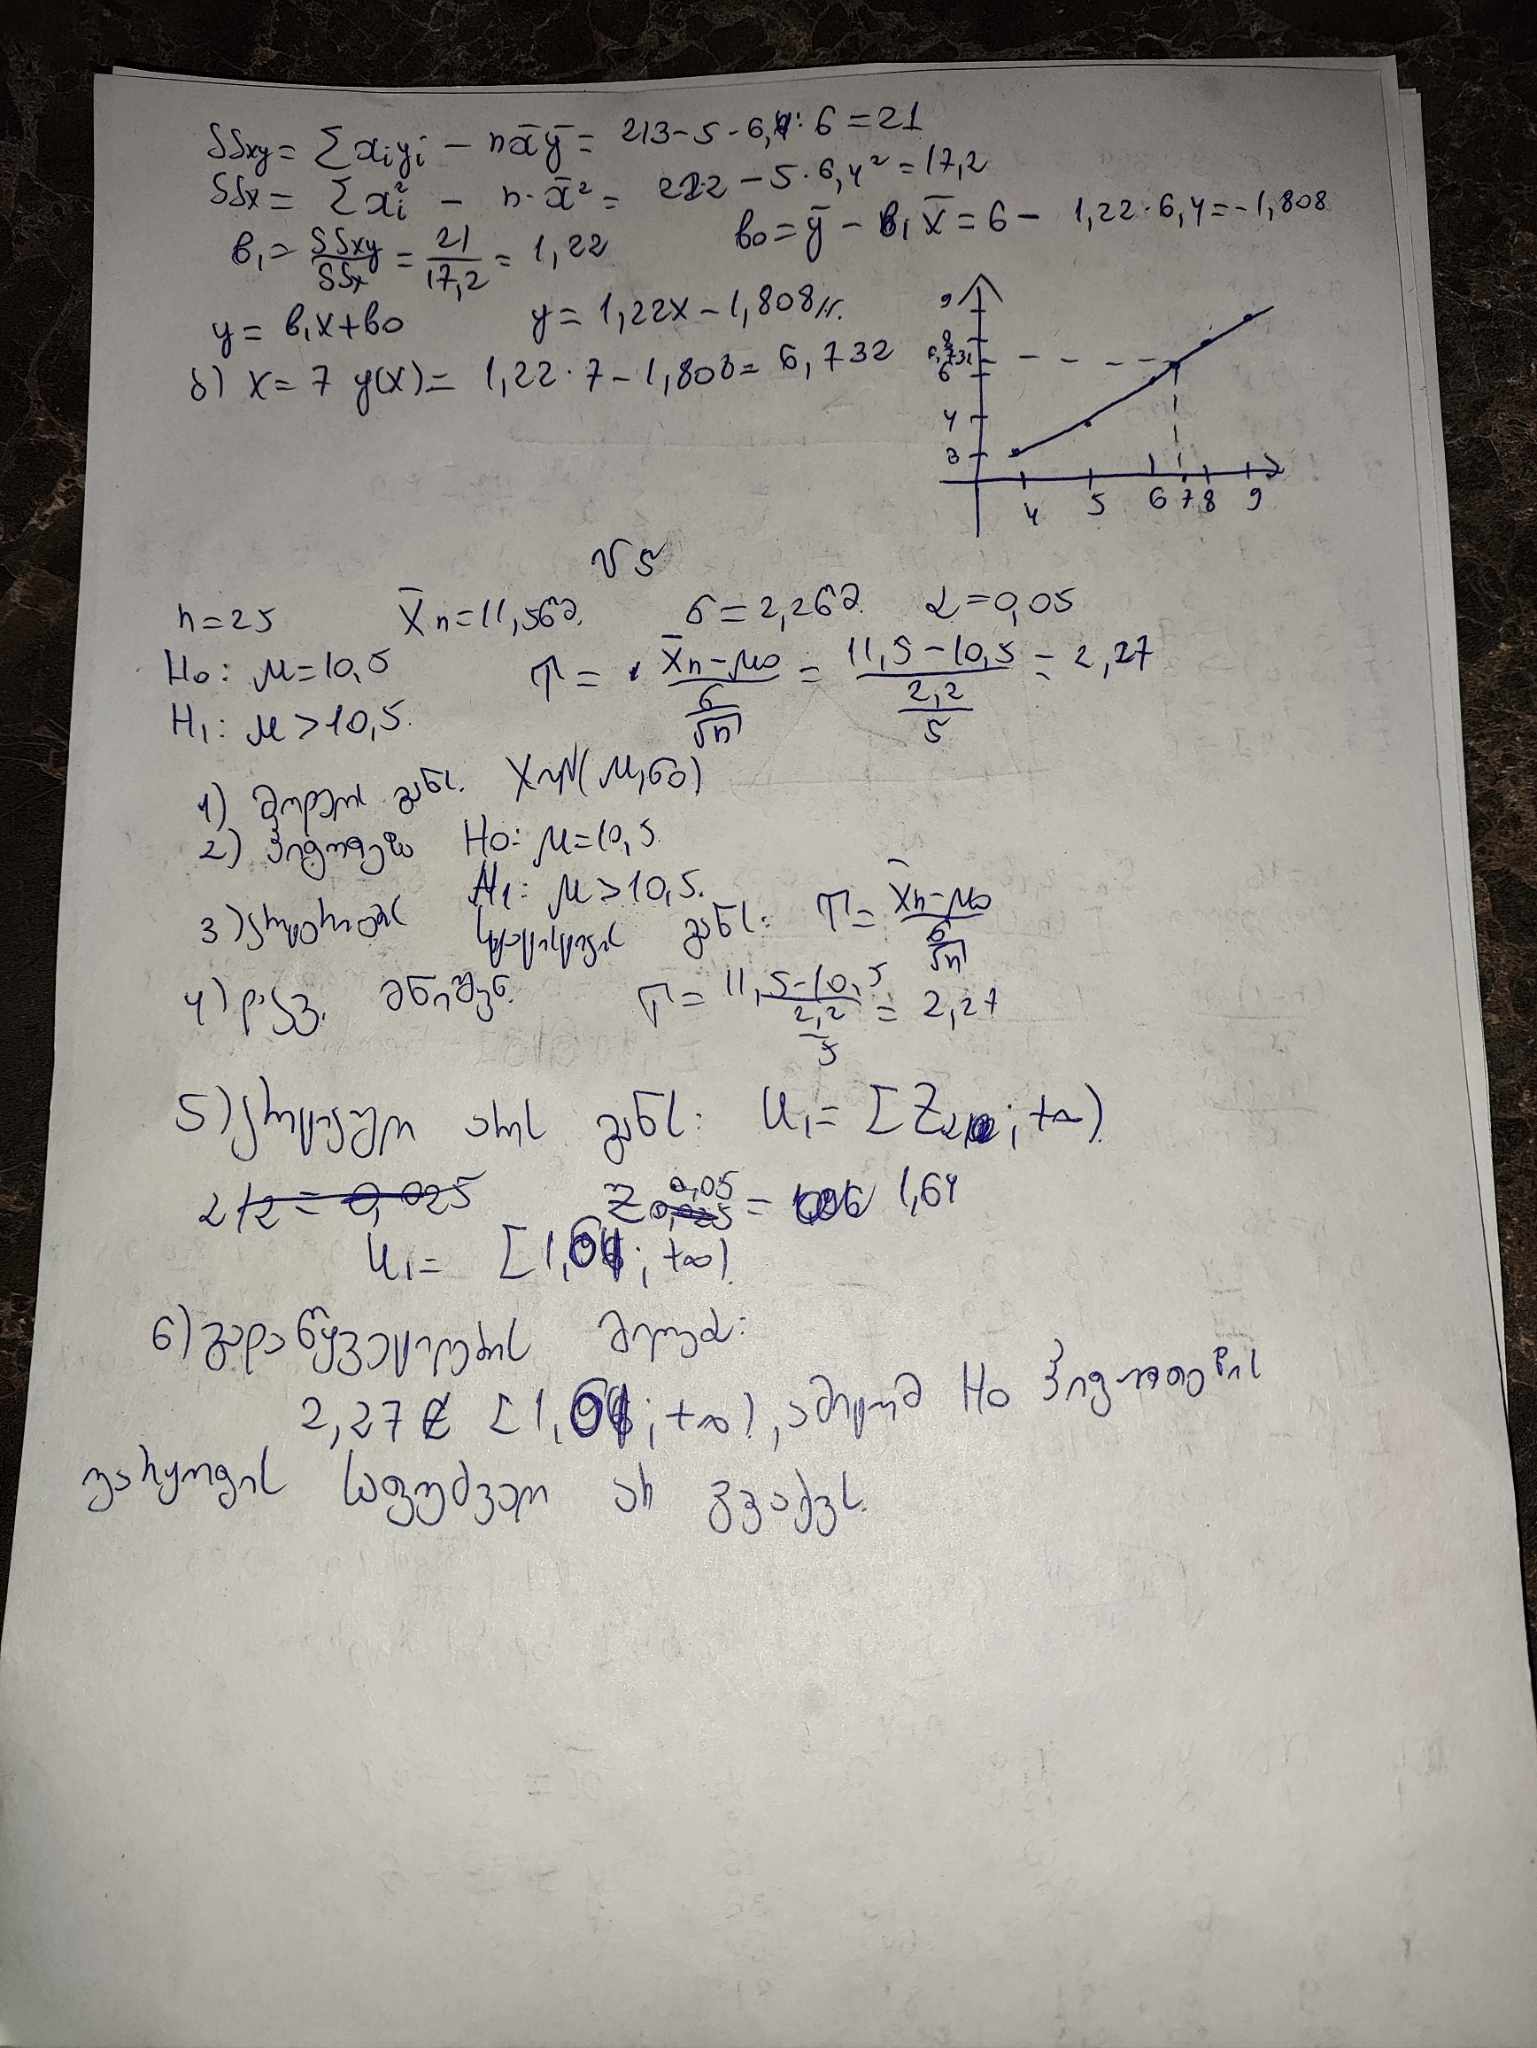 SSxy = Σxiyi − nx̄ȳ = 213 − 5 · 6,4 · 6 = 21
SSx = Σxi² − n · x̄² = 222 − 5 · 6,4² = 17,2
b₁ = SSxy/SSx = 21/17,2 = 1,22 b₀ = ȳ − b₁x̄ = 6 − 1,22 · 6,4 = −1,808
y = b₁x + b₀ y = 1,22x − 1,808
ბ) x = 7 y(x) = 1,22 · 7 − 1,808 = 6,732
9
8
6,732
6
4
3
4 5 6 7 8 9
√5
n = 25 X̄n = 11,5წმ. σ = 2,2წმ. α = 0,05
H₀: μ = 10,5 T = (X̄n − μ₀)/(σ/√n) = (11,5 − 10,5)/(2,2/5) = 2,27
H₁: μ > 10,5.
1) მოდელის განს. X~N(μ, σ₀)
2) ჰიპოთეზა H₀: μ = 10,5.
H₁: μ > 10,5.
3) კრიტერიუმის სტატისტიკის განს: T = (X̄n − μ₀)/(σ/√n)
4) დაკვ. მნიშვნ. T = (11,5 − 10,5)/(2,2/5) = 2,27
5) კრიტიკული არის განს: U₁ = [Zα; +∞).
α/2 = 0,025 Z0,05 = 1,64
U₁ = [1,64; +∞)
6) გადაწყვეტილების მიღება:
2,27 ∉ [1,64; +∞), ამიტომ H₀ ჰიპოთეზის
უარყოფის საფუძველი არ გვაქვს.